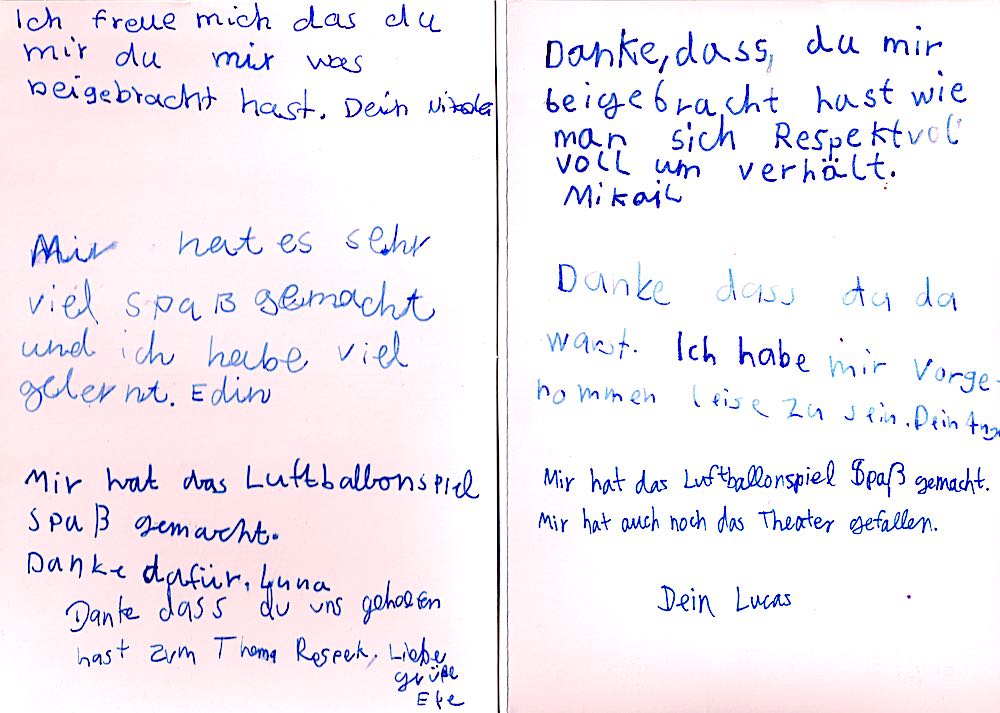 Ich freue mich das du
mir du mir was
beigebracht hast. Dein
Mir hat es sehr
viel Spaß gemacht
und ich habe viel
gelernt. Edin
Mir hat das Luftballonspiel
Spaß gemacht.
Danke dafür. Luna
Danke dass du uns geholfen
hast zum Thema Respek. Liebe
grüße
Efe
Danke, dass, du mir
beigebracht hast wie
man sich Respektvol
voll um verhält.
Mikail
Danke dass du da
warst. Ich habe mir Vorge-
nommen leise zu sein. Dein
Mir hat das Luftballonspiel Spaß gemacht.
Mir hat auch noch das Theater gefallen.
Dein Lucas